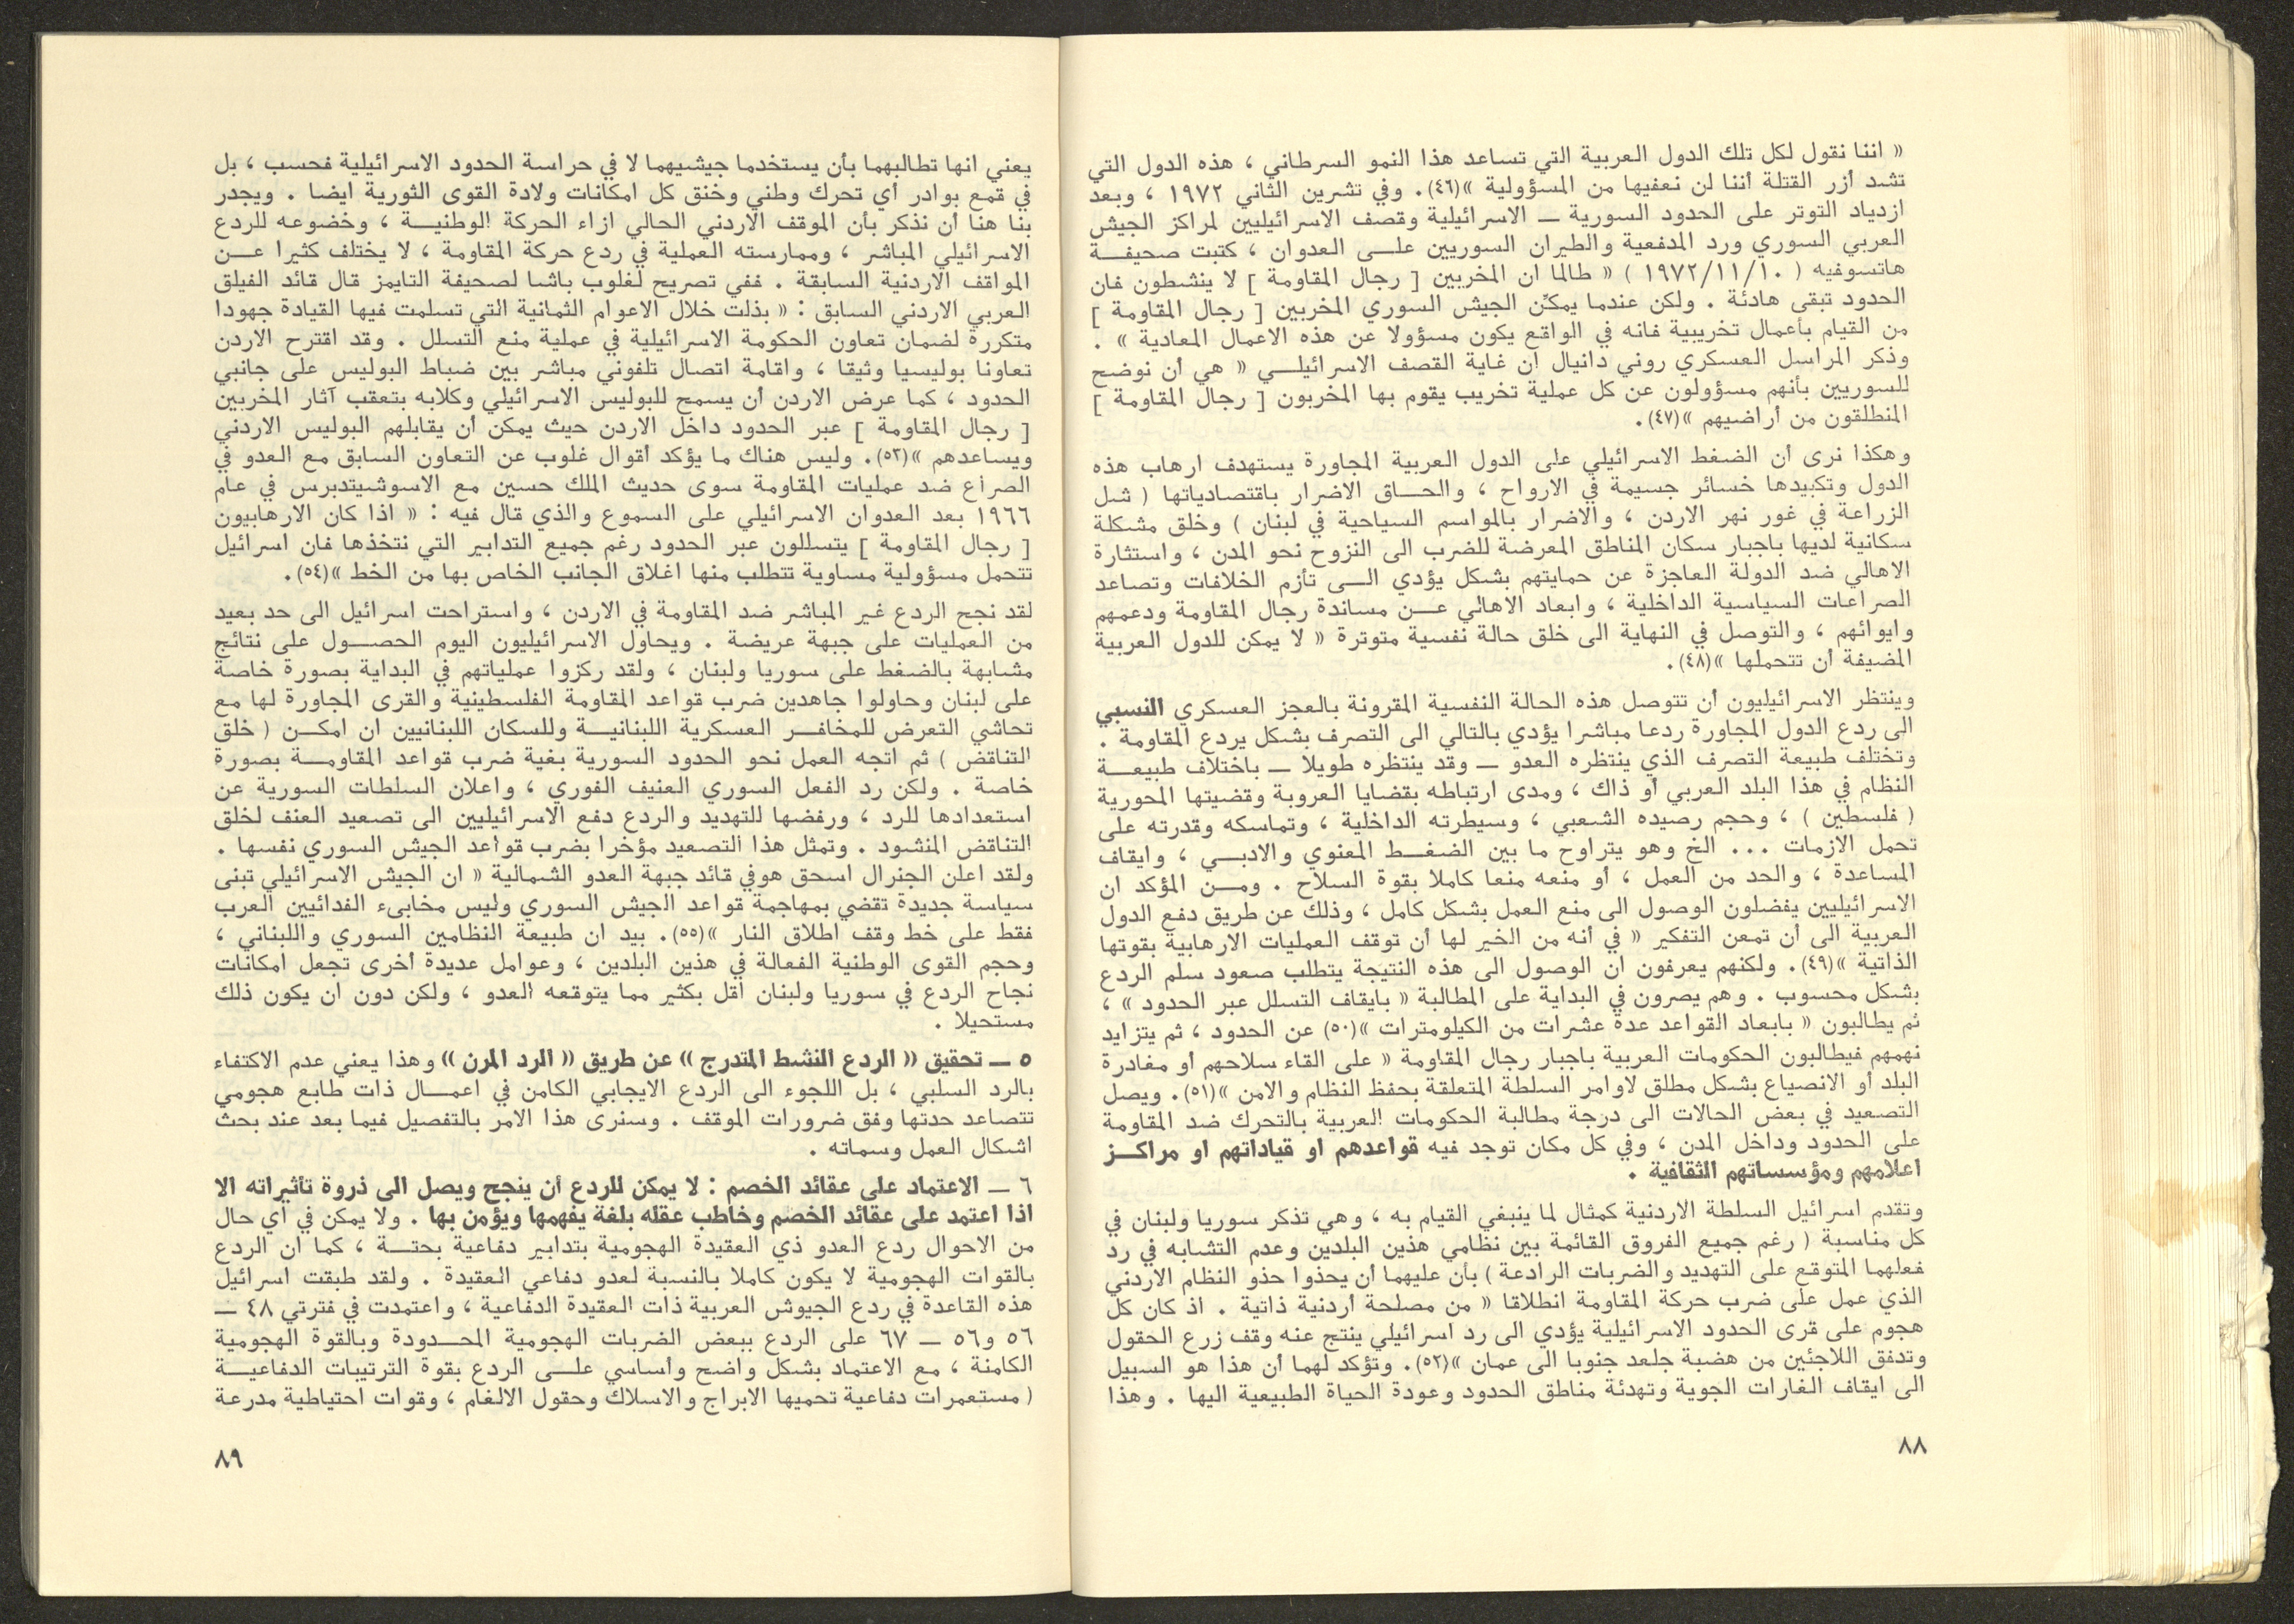 « اننا نقول لكل تلك الدول العربية التي تساعد هذا النمو السرطاني ، هذه الدول التي
تشد أزر القتلة أننا لن نعفيها من المسؤولية »(٤٦). وفي تشرين الثاني ١٩٧٢ ، وبعد
ازدياد التوتر على الحدود السورية ــ الاسرائيلية وقصف الاسرائيليين لمراكز الجيش
العربي السوري ورد المدفعية والطيران السوريين علـــى العدوان ، كتبت صحيفـــة
هاتسوفيه ( ١٩٧٢/١١/١٠ ) « طالما ان المخربين [ رجال المقاومة ] لا ينشطون فان
الحدود تبقى هادئة . ولكن عندما يمكّن الجيش السوري المخربين [ رجال المقاومة ]
من القيام بأعمال تخريبية فانه في الواقع يكون مسؤولا عن هذه الاعمال المعادية » .
وذكر المراسل العسكري روني دانيال ان غاية القصف الاسرائيلـــي « هي أن نوضح
للسوريين بأنهم مسؤولون عن كل عملية تخريب يقوم بها المخربون [ رجال المقاومة ]
المنطلقون من أراضيهم »(٤٧).
وهكذا نرى أن الضغط الاسرائيلي على الدول العربية المجاورة يستهدف ارهاب هذه
الدول وتكبيدها خسائر جسيمة في الارواح ، والحـــاق الاضرار باقتصادياتها ( شل
الزراعة في غور نهر الاردن ، والاضرار بالمواسم السياحية في لبنان ) وخلق مشكلة
سكانية لديها باجبار سكان المناطق المعرضة للضرب الى النزوح نحو المدن ، واستثارة
الاهالي ضد الدولة العاجزة عن حمايتهم بشكل يؤدي الـــى تأزم الخلافات وتصاعد
الصراعات السياسية الداخلية ، وابعاد الاهالي عـــن مساندة رجال المقاومة ودعمهم
وايوائهم ، والتوصل في النهاية الى خلق حالة نفسية متوترة « لا يمكن للدول العربية
المضيفة أن تتحملها »(٤٨).
وينتظر الاسرائيليون أن تتوصل هذه الحالة النفسية المقرونة بالعجز العسكري النسبي
الى ردع الدول المجاورة ردعا مباشرا يؤدي بالتالي الى التصرف بشكل يردع المقاومة .
وتختلف طبيعة التصرف الذي ينتظره العدو ــ وقد ينتظره طويلا ــ باختلاف طبيعـــة
النظام في هذا البلد العربي أو ذاك ، ومدى ارتباطه بقضايا العروبة وقضيتها المحورية
( فلسطين ) ، وحجم رصيده الشعبي ، وسيطرته الداخلية ، وتماسكه وقدرته على
تحمل الازمات ... الخ وهو يتراوح ما بين الضغـــط المعنوي والادبـــي ، وايقاف
المساعدة ، والحد من العمل ، أو منعه منعا كاملا بقوة السلاح . ومـــن المؤكد ان
الاسرائيليين يفضلون الوصول الى منع العمل بشكل كامل ، وذلك عن طريق دفع الدول
العربية الى أن تمعن التفكير « في أنه من الخير لها أن توقف العمليات الارهابية بقوتها
الذاتية »(٤٩). ولكنهم يعرفون ان الوصول الى هذه النتيجة يتطلب صعود سلم الردع
بشكل محسوب . وهم يصرون في البداية على المطالبة « بايقاف التسلل عبر الحدود » ،
ثم يطالبون « بابعاد القواعد عدة عشرات من الكيلومترات »(٥٠) عن الحدود ، ثم يتزايد
نهمهم فيطالبون الحكومات العربية باجبار رجال المقاومة « على القاء سلاحهم أو مغادرة
البلد أو الانصياع بشكل مطلق لاوامر السلطة المتعلقة بحفظ النظام والامن »(٥١). ويصل
التصعيد في بعض الحالات الى درجة مطالبة الحكومات العربية بالتحرك ضد المقاومة
على الحدود وداخل المدن ، وفي كل مكان توجد فيه قواعدهم او قياداتهم او مراكـــز
اعلامهم ومؤسساتهم الثقافية .
وتقدم اسرائيل السلطة الاردنية كمثال لما ينبغي القيام به ، وهي تذكر سوريا ولبنان في
كل مناسبة ( رغم جميع الفروق القائمة بين نظامي هذين البلدين وعدم التشابه في رد
فعلهما المتوقع على التهديد والضربات الرادعة ) بأن عليهما أن يحذوا حذو النظام الاردني
الذي عمل على ضرب حركة المقاومة انطلاقا « من مصلحة أردنية ذاتية . اذ كان كل
هجوم على قرى الحدود الاسرائيلية يؤدي الى رد اسرائيلي ينتج عنه وقف زرع الحقول
وتدفق اللاجئين من هضبة جلعد جنوبا الى عمان »(٥٢). وتؤكد لهما أن هذا هو السبيل
الى ايقاف الغارات الجوية وتهدئة مناطق الحدود وعودة الحياة الطبيعية اليها . وهذا
٨٨
يعني انها تطالبهما بأن يستخدما جيشيهما لا في حراسة الحدود الاسرائيلية فحسب ، بل
في قمع بوادر أي تحرك وطني وخنق كل امكانات ولادة القوى الثورية ايضا . ويجدر
بنا هنا أن نذكر بأن الموقف الاردني الحالي ازاء الحركة الوطنيـــة ، وخضوعه للردع
الاسرائيلي المباشر ، وممارسته العملية في ردع حركة المقاومة ، لا يختلف كثيرا عـــن
المواقف الاردنية السابقة . ففي تصريح لغلوب باشا لصحيفة التايمز قال قائد الفيلق
العربي الاردني السابق : « بذلت خلال الاعوام الثمانية التي تسلمت فيها القيادة جهودا
متكررة لضمان تعاون الحكومة الاسرائيلية في عملية منع التسلل . وقد اقترح الاردن
تعاونا بوليسيا وثيقا ، واقامة اتصال تلفوني مباشر بين ضباط البوليس على جانبي
الحدود ، كما عرض الاردن أن يسمح للبوليس الاسرائيلي وكلابه بتعقب آثار المخربين
[ رجال المقاومة ] عبر الحدود داخل الاردن حيث يمكن أن يقابلهم البوليس الاردني
ويساعدهم »(٥٣). وليس هناك ما يؤكد أقوال غلوب عن التعاون السابق مع العدو في
الصراع ضد عمليات المقاومة سوى حديث الملك حسين مع الاسوشيتدبرس في عام
١٩٦٦ بعد العدوان الاسرائيلي على السموع والذي قال فيه : « اذا كان الارهابيون
[ رجال المقاومة ] يتسللون عبر الحدود رغم جميع التدابير التي نتخذها فان اسرائيل
تتحمل مسؤولية مساوية تتطلب منها اغلاق الجانب الخاص بها من الخط »(٥٤).
لقد نجح الردع غير المباشر ضد المقاومة في الاردن ، واستراحت اسرائيل الى حد بعيد
من العمليات على جبهة عريضة . ويحاول الاسرائيليون اليوم الحصـــول على نتائج
مشابهة بالضغط على سوريا ولبنان ، ولقد ركزوا عملياتهم في البداية بصورة خاصة
على لبنان وحاولوا جاهدين ضرب قواعد المقاومة الفلسطينية والقرى المجاورة لها مع
تحاشي التعرض للمخافـــر العسكرية اللبنانيـــة وللسكان اللبنانيين ان امكـــن ( خلق
التناقض ) ثم اتجه العمل نحو الحدود السورية بغية ضرب قواعد المقاومـــة بصورة
خاصة . ولكن رد الفعل السوري العنيف الفوري ، واعلان السلطات السورية عن
استعدادها للرد ، ورفضها للتهديد والردع دفع الاسرائيليين الى تصعيد العنف لخلق
التناقض المنشود . وتمثل هذا التصعيد مؤخرا بضرب قواعد الجيش السوري نفسها .
ولقد اعلن الجنرال اسحق هوفي قائد جبهة العدو الشمالية « ان الجيش الاسرائيلي تبنى
سياسة جديدة تقضي بمهاجمة قواعد الجيش السوري وليس مخابىء الفدائيين العرب
فقط على خط وقف اطلاق النار »(٥٥). بيد ان طبيعة النظامين السوري واللبناني ،
وحجم القوى الوطنية الفعالة في هذين البلدين ، وعوامل عديدة أخرى تجعل امكانات
نجاح الردع في سوريا ولبنان أقل بكثير مما يتوقعه العدو ، ولكن دون ان يكون ذلك
مستحيلا .
٥ ــ تحقيق « الردع النشط المتدرج » عن طريق « الرد المرن » وهذا يعني عدم الاكتفاء
بالرد السلبي ، بل اللجوء الى الردع الايجابي الكامن في اعمـــال ذات طابع هجومي
تتصاعد حدتها وفق ضرورات الموقف . وسنرى هذا الامر بالتفصيل فيما بعد عند بحث
اشكال العمل وسماته .
٦ ــ الاعتماد على عقائد الخصم : لا يمكن للردع أن ينجح ويصل الى ذروة تأثيراته الا
اذا اعتمد على عقائد الخصم وخاطب عقله بلغة يفهمها ويؤمن بها . ولا يمكن في أي حال
من الاحوال ردع العدو ذي العقيدة الهجومية بتدابير دفاعية بحتـــة ، كما ان الردع
بالقوات الهجومية لا يكون كاملا بالنسبة لعدو دفاعي العقيدة . ولقد طبقت اسرائيل
هذه القاعدة في ردع الجيوش العربية ذات العقيدة الدفاعية ، واعتمدت في فترتي ٤٨ ــ
٥٦ و٥٦ ــ ٦٧ على الردع ببعض الضربات الهجومية المحـــدودة وبالقوة الهجومية
الكامنة ، مع الاعتماد بشكل واضح وأساسي علـــى الردع بقوة الترتيبات الدفاعيـــة
( مستعمرات دفاعية تحميها الابراج والاسلاك وحقول الالغام ، وقوات احتياطية مدرعة
٨٩